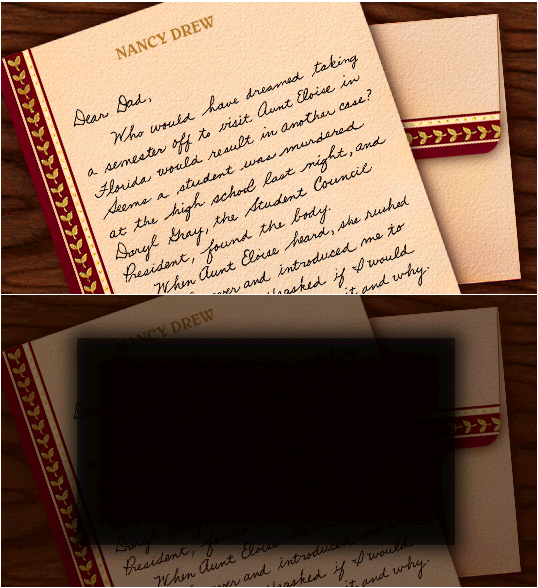 NANCY DREW
Dear Dad,
Who would have dreamed taking
a semester off to visit Aunt Eloise in
Florida would result in another case?
Seems a student was murdered
at the high school last night, and
Daryl Gray, the Student Council
President, found the body.
When Aunt Eloise heard, she rushed
over and introduced me to
asked if I would
it and why.
NANCY DREW
Dear
President, found
When Aunt Eloise heard
over and introduced me to
asked if I would
it and why.